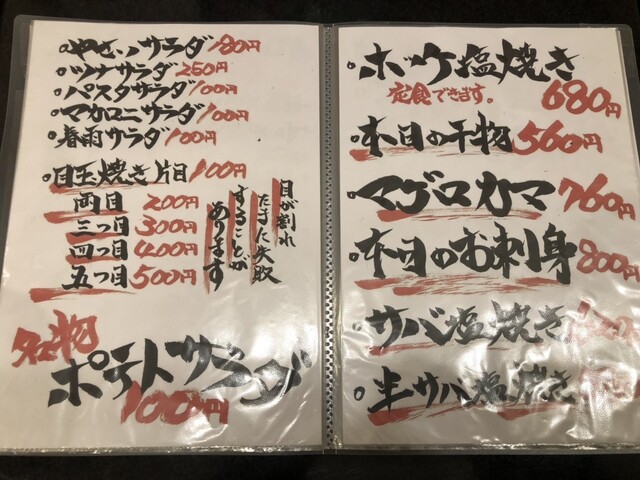 やさいサラダ 180円
ツナサラダ 250円
パスタサラダ 100円
マカロニサラダ 100円
春雨サラダ 100円
目玉焼き 片目 100円
両目 200円
三つ目 300円
四つ目 400円
五つ目 500円
目が割れ
たまに失敗
することが
あります
名物
ポテトサラダ
100円
ホッケ塩焼き
定食できます。 680円
本日の干物 560円
マグロカマ 760円
本日のお刺身 800円
サバ塩焼き
半サバ塩焼き